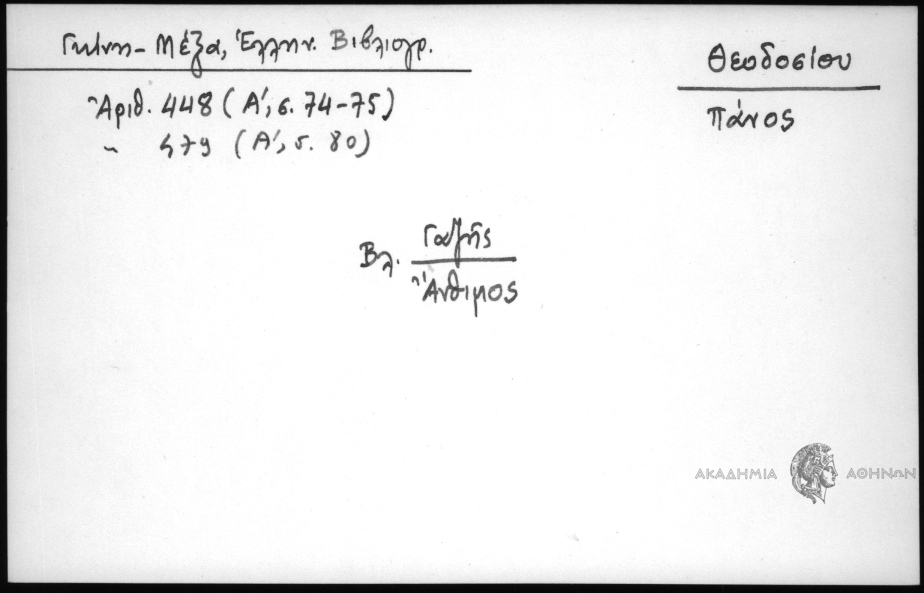 Γκίνη - Μέξα, Ἑλλην. Βιβλιογρ.
Θεοδοσίου
Πάνος
Ἀριθ. 448 (Α', σ. 74-75)
〃 479 (Α', σ. 80)
Βλ. Γαζῆς
Ἄνθιμος
ΑΚΑΔΗΜΙΑ ΑΘΗΝΩΝ